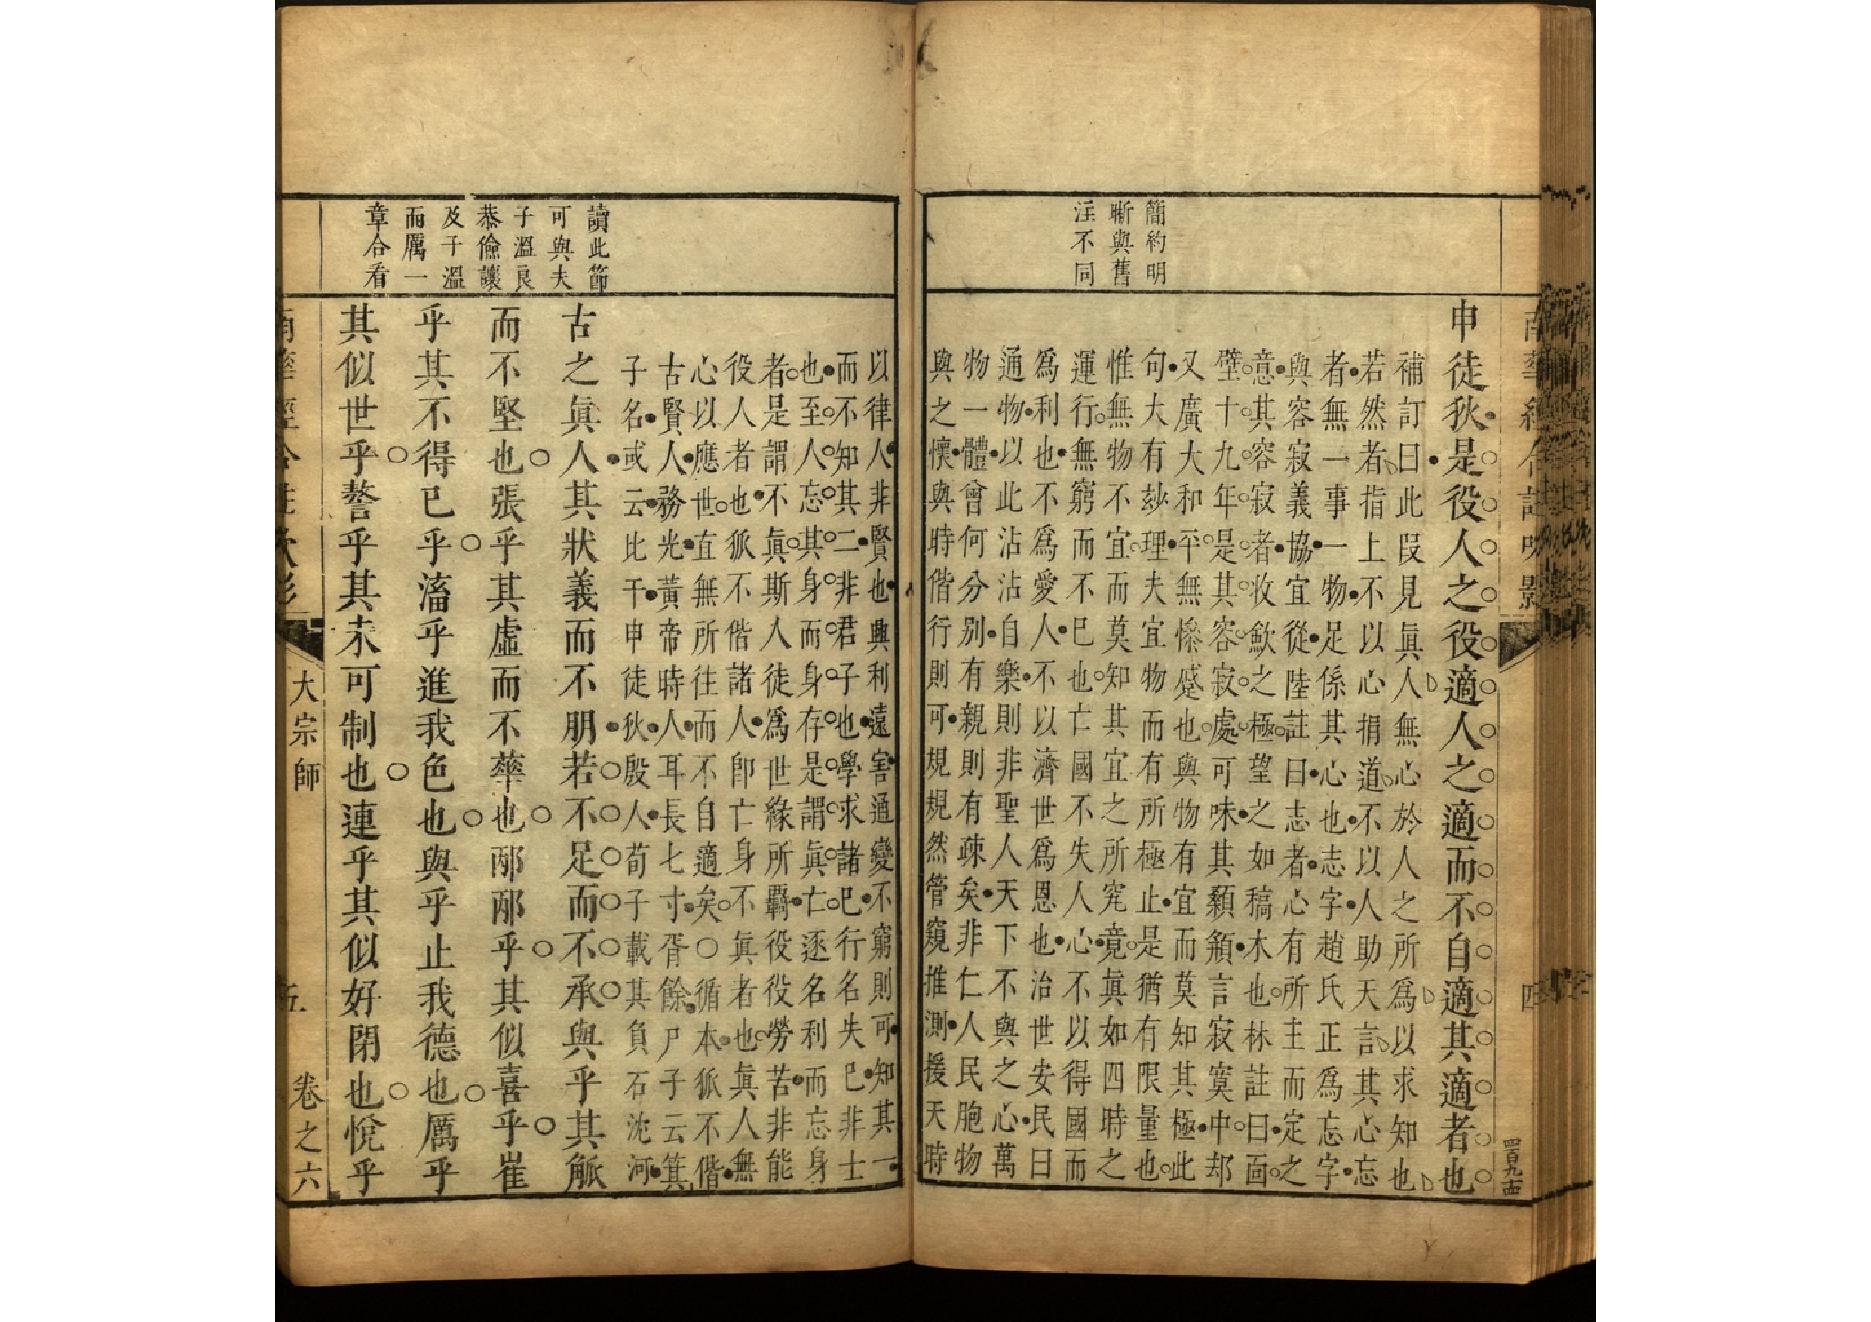 南華經合註吹影
四
四百九十四
簡約明
晣與舊
注不同
申徒狄是役人之役適人之適而不自適其適者也
補訂曰此叚見眞人無心於人之所爲以求知也
若然者指上不以心捐道不以人助天言其心忘
者無一事一物足係其心也志字趙氏正爲忘字
與容寂義協宜從陸註曰志者心有所主而定之
意其容寂者收歛之極望之如稿木也林註曰面
壁十九年是其容寂處可味其顙頯言寂寞中却
又廣大和平無慘蹙也與物有宜而莫知其極此
句大有玅理夫宜物而有所極止是猶有限量也
惟無物不宜而莫知其宜之所究竟眞如四時之
運行無窮而不已也亡國不失人心不以得國而
爲利也不爲愛人不以濟世爲恩也治世安民曰
通物以此沾沾自樂則非聖人天下不與之心萬
物一體曾何分別有親則有疎矣非仁人民胞物
與之懷與時偕行則可規規然管窺推測援天時
以律人非賢也興利遠害通變不窮則可知其一
而不知其二非君子也學求諸已行名失已非士
也至人忘其身而身存是謂眞亡逐名利而忘身
者是謂不眞斯人徒爲世緣所羈役役勞苦非能
役人者也狐不偕諸人卽亡身不眞者也眞人無
心以應世直無所往而不自適矣○循本狐不偕
古賢人務光黃帝時人耳長七寸胥餘尸子云箕
子名或云比干申徒狄殷人荀子載其負石沈河
讀此節
可與夫
子溫良
恭儉讓
及子溫
而厲一
章合看
古之眞人其狀義而不朋若不足而不承與乎其觚
而不堅也張乎其虛而不華也邴邴乎其似喜乎崔
乎其不得已乎滀乎進我色也與乎止我德也厲乎
其似世乎謷乎其未可制也連乎其似好閉也悅乎
南華經合註吹影
大宗師
五
卷之六